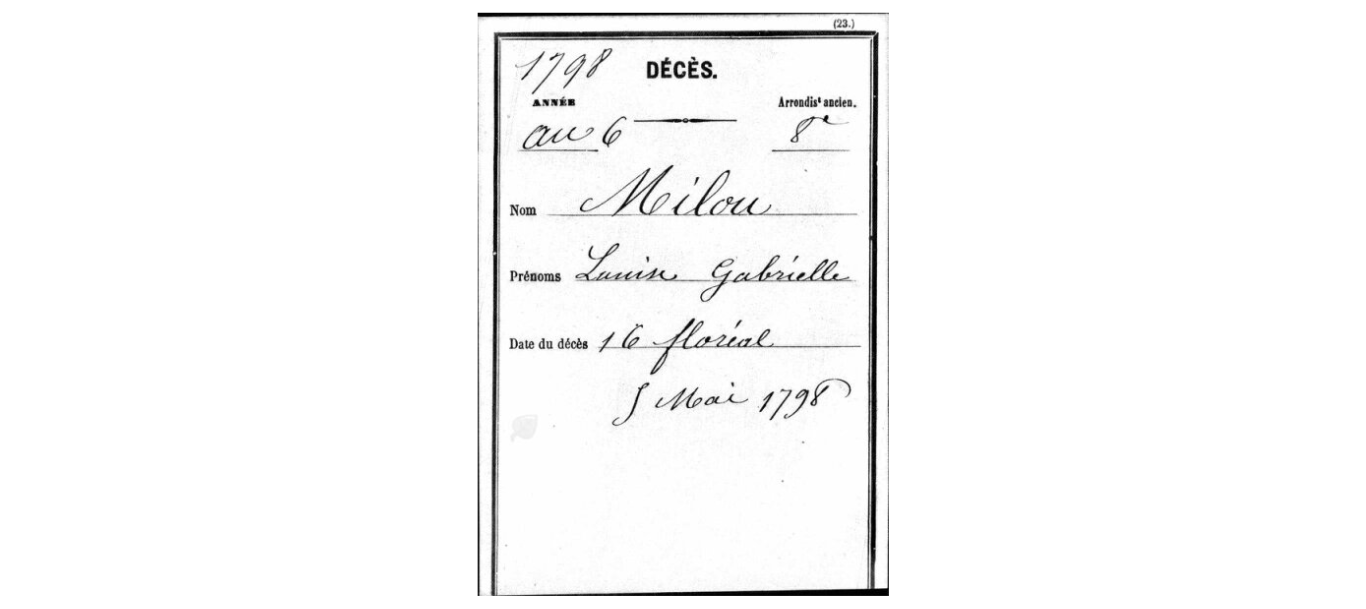 (23.)
1798 DÉCÈS.
ANNÉE Arrondis^t ancien.
an 6 8^e
Nom Milou
Prénoms Louise Gabrielle
Date du décès 16 floréal
5 Mai 1798